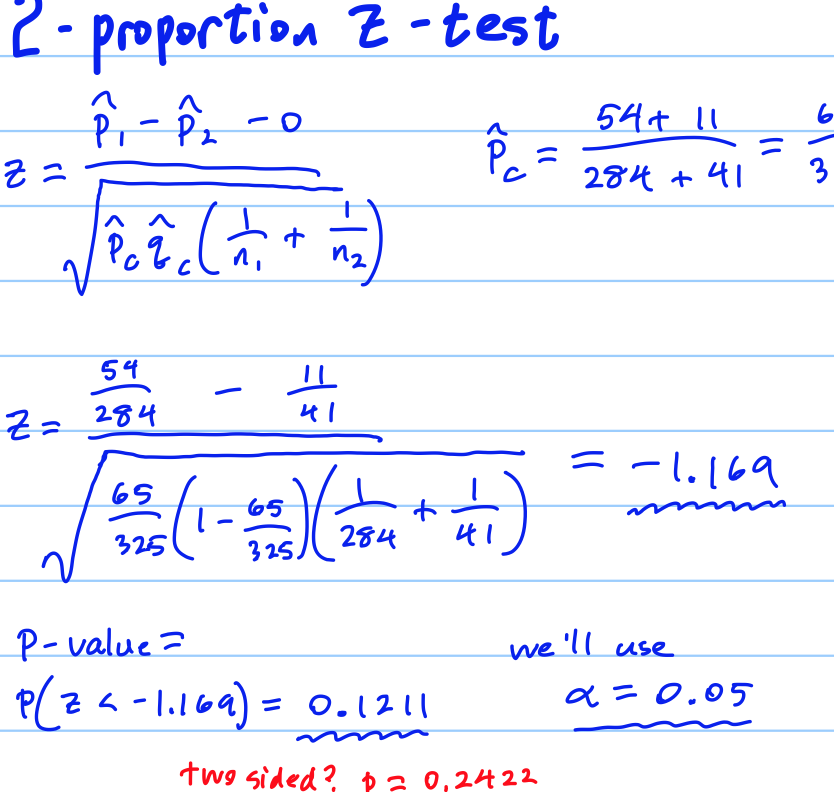 2 - proportion z - test
z = (p̂₁ - p̂₂ - 0) / √(p̂_c q̂_c (1/n₁ + 1/n₂))
p̂_c = (54 + 11) / (284 + 41) = 6 / 3
z = (54/284 - 11/41) / √(65/325 (1 - 65/325)(1/284 + 1/41)) = -1.169
P-value =
we'll use
P(z < -1.169) = 0.1211
α = 0.05
two sided? p = 0.2422